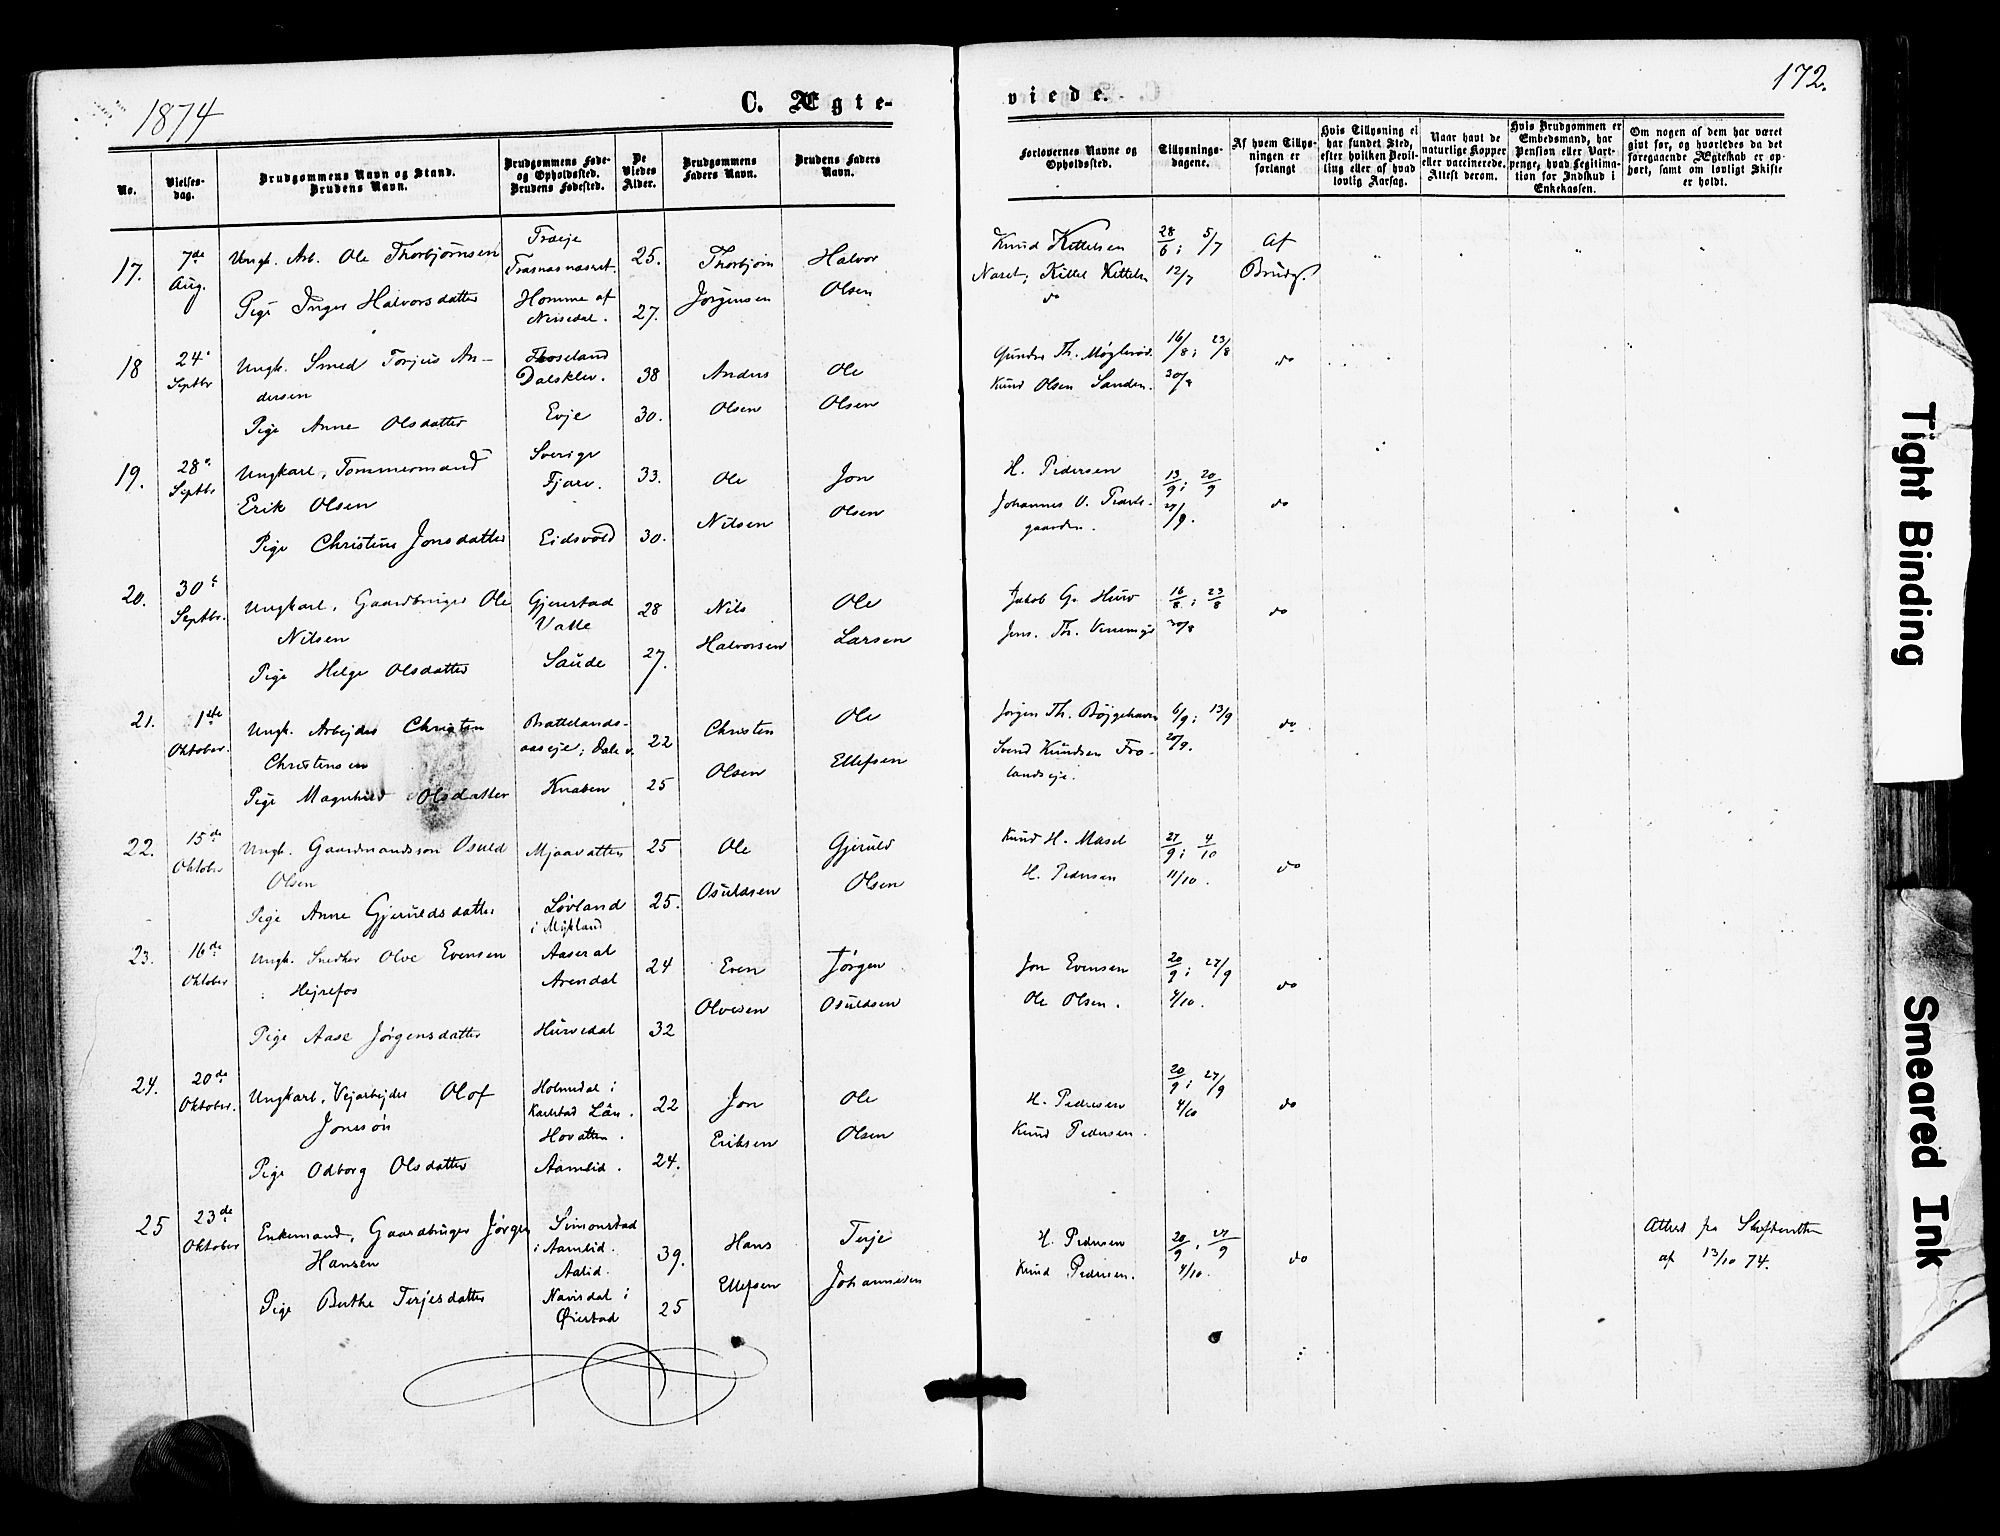 1874
C. Ægte-
viede.
172.
No.
Vielses-
dag.
Brudgommens Navn og Stand.
Brudens Navn.
Brudgommens Føde-
og Opholdssted.
Brudens Fødested.
De
Viedes
Alder.
Brudgommens
Faders Navn.
Brudens Faders
Navn.
Forlovernes Navne og
Opholdssted.
Tillysnings-
dagene.
Af hvem Tillys-
ningen er
forlangt
Hvis Tillysning ei
har fundet Sted,
efter hvilken Bevil-
ling eller af hvad
lovlig Aarsag.
Naar havt de
naturlige Kopper
eller vaccinerede.
Attest derom.
Hvis Brudgommen er
Embedsmand, har
Pension eller Vart-
penge, hvad Legitima-
tion for Indskud i
Enkekassen.
Om nogen af dem har været
givt før, og hvorledes da det
foregaaende Ægteskab er op-
hørt, samt om lovligt Skifte
er holdt.
17.
7de
Aug.
Ungk. Arb. Ole Thorbjørnsen
Pige Inger Halvorsdatter
Træje
Homme af
Nissedal.
25.
27.
Thorbjørn
Jørgensen
Halvor
Olsen
Knud Kittelsen
Naset, Kittel Kittelsen
do
28/6; 5/7
12/7
Af
Brudg.
18
24
Septbr
Ungk. Smed Torjus An-
dersen
Pige Anne Olsdatter
Froseland
Dalsklev.
Evje
38
30.
Anders
Olsen
Ole
Olsen
Gunder Th. Møglerød.
Knud Olsen Sanden.
16/8; 23/8
30/8
do
19.
28
Septbr
Ungkarl, Tømmermand
Erik Olsen
Pige Christine Jonsdatter
Sverige
Fjære.
Eidsvold
33.
30.
Ole
Nilsen
Jon
Olsen
H. Pedersen
Johannes O.
gaarden.
13/9; 20/9
27/9.
do
20.
30
Septbr.
Ungkarl, Gaardbruger Ole
Nilsen
Pige Helge Olsdatter
Gjerestad
Valle
Saude
28
27.
Nils
Halvorsen
Ole
Larsen
Jakob G. Hurv
Jens. Th. Vennemyr
16/8; 23/8
30/8
do
21.
1ste
Oktober.
Ungk. Arbejder Christen
Christensen
Pige Magnhild Olsdatter
Brattelands-
aaseje; Dale v.
Knaben
22
25
Christen
Olsen
Ole
Ellefsen
Jørgen Th. Bøjgehaven
Svend Knudsen Fro-
landseje.
6/9; 13/9
20/9.
do
22.
15de
Oktober
Ungk. Gaardmandssøn Osuld
Olsen
Pige Anne Gjeruldsdatter
Mjaavatten
Løvland
i Mykland
25
25.
Ole
Osuldsen
Gjeruld
Olsen
Knud H. Masel
H. Pedersen
27/9; 4/10
11/10.
do
23.
16de
Oktober
Ungk. Snedker Olve Evensen
Hejrefos
Pige Aase Jørgensdatter
Aaseral
Arendal
Hurvedal
24
32
Even
Olvesen
Jørgen
Osuldsen
Jon Evensen
Ole Olsen.
20/9; 27/9
4/10.
do
24.
20de
Oktober.
Ungkarl, Vejarbejder Olof
Jonsson
Pige Odborg Olsdatter
Holmedal i
Karlstad Län.
Hovatten.
Aamlid.
22
24.
Jon
Eriksen
Ole
Olsen
H. Pedersen
Knud Pedersen.
20/9; 27/9
4/10
do
25
23de
Oktober
Enkemand, Gaardbruger Jørgen
Hansen
Pige Berthe Terjesdatter
Simonstad
i Aamlid.
Aalid.
Navisdal i
Øiestad
39.
25
Hans
Ellefsen
Terje
Johannesen
H. Pedersen
Knud Pedersen.
20/9. 27/9
4/10.
do
Attest fra Skifteretten
af 13/10 74.
Tight Binding
Smeared Ink